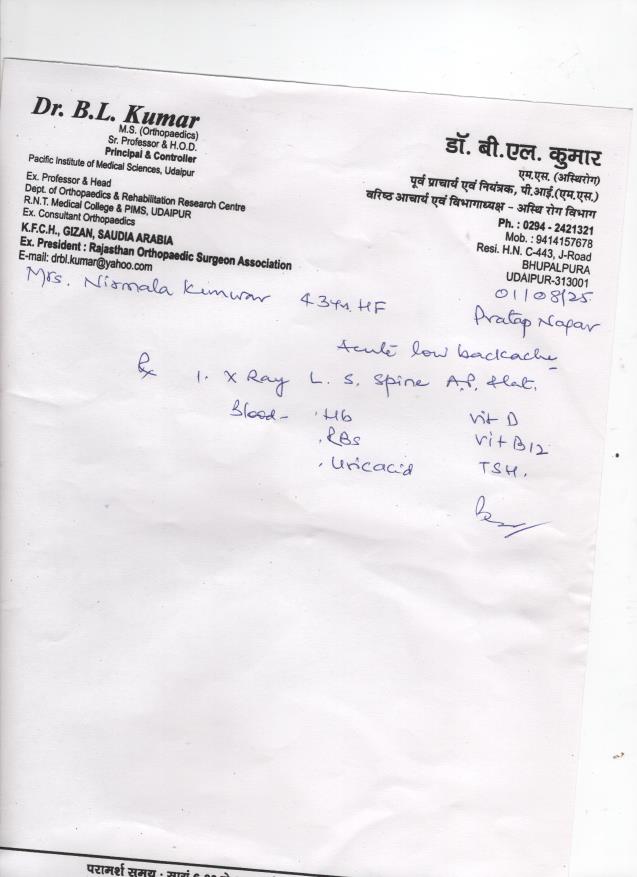 Dr. B.L. Kumar
M.S. (Orthopaedics)
Sr. Professor & H.O.D.
Principal & Controller
Pacific Institute of Medical Sciences, Udaipur
Ex. Professor & Head
Dept. of Orthopaedics & Rehabilitation Research Centre
R.N.T. Medical College & PIMS, UDAIPUR
Ex. Consultant Orthopaedics
K.F.C.H., GIZAN, SAUDIA ARABIA
Ex. President : Rajasthan Orthopaedic Surgeon Association
E-mail: drbl.kumar@yahoo.com
डॉ. बी.एल. कुमार
एम.एस. (अस्थिरोग)
पूर्व प्राचार्य एवं नियंत्रक, पी.आई.(एम.एस.)
वरिष्ठ आचार्य एवं विभागाध्यक्ष - अस्थि रोग विभाग
Ph. : 0294 - 2421321
Mob. : 9414157678
Resi. H.N. C-443, J-Road
BHUPALPURA
UDAIPUR-313001
Mrs. Nirmala Kunwar 43yrs. HF
01/08/25
Pratap Nagar
Acute low backache
Rx 1. X Ray L. S. Spine A.P. &lat.
Blood- . Hb Vit D
. RBS Vit B12
. Uricacid TSH.
परामर्श समय : सायं